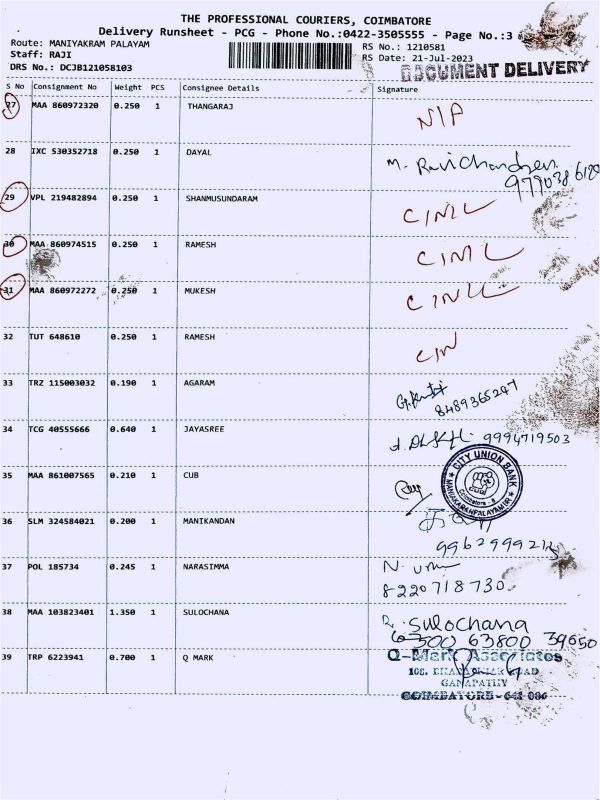 THE PROFESSIONAL COURIERS, COIMBATORE
Delivery Runsheet - PCG - Phone No.:0422-3505555 - Page No.:3
Route: MANIYAKRAM PALAYAM
RS No.: 1210581
Staff: RAJI
RS Date: 21-Jul-2023
DRS No.: DCJB121058103
DOCUMENT DELIVERY
S No Consignment No Weight PCS Consignee Details Signature
27 MAA 860972320 0.250 1 THANGARAJ N/P
28 IXC 530352718 0.250 1 DAYAL M. Ravichandren
29 VPL 219482894 0.250 1 SHANMUSUNDARAM
30 MAA 860974515 0.250 1 RAMESH
31 MAA 860972272 0.250 1 MUKESH
32 TUT 648610 0.250 1 RAMESH CIN
33 TRZ 115003032 0.190 1 AGARAM
8489365247
34 TCG 40555666 0.640 1 JAYASREE 9994719503
35 MAA 861007565 0.210 1 CUB
CITY UNION BANK
Coimbatore - 6
36 SLM 324584021 0.200 1 MANIKANDAN
37 POL 185734 0.245 1 NARASIMMA
8220718730
38 MAA 103823401 1.350 1 SULOCHANA R. Sulochana
63800 39650
39 TRP 6223941 0.700 1 Q MARK Q-Mark Associates
GANAPATHY
COIMBATORE - 641 006